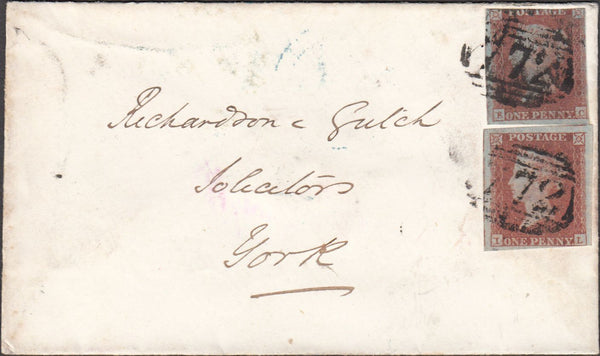 POSTAGE
72
E ONE PENNY C
POSTAGE
72
I ONE PENNY L
Richardson & Gutch
Solicitors
York